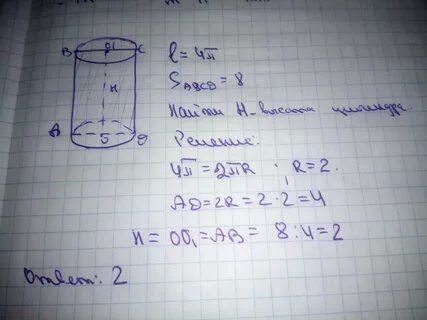 B O₁ C
H
A O D
l = 4π
S_ABCD = 8
Найти H - высота цилиндра
Решение:
4π = 2πR ; R = 2.
AD = 2R = 2 · 2 = 4
H = OO₁ = AB = 8 : 4 = 2
Ответ: 2